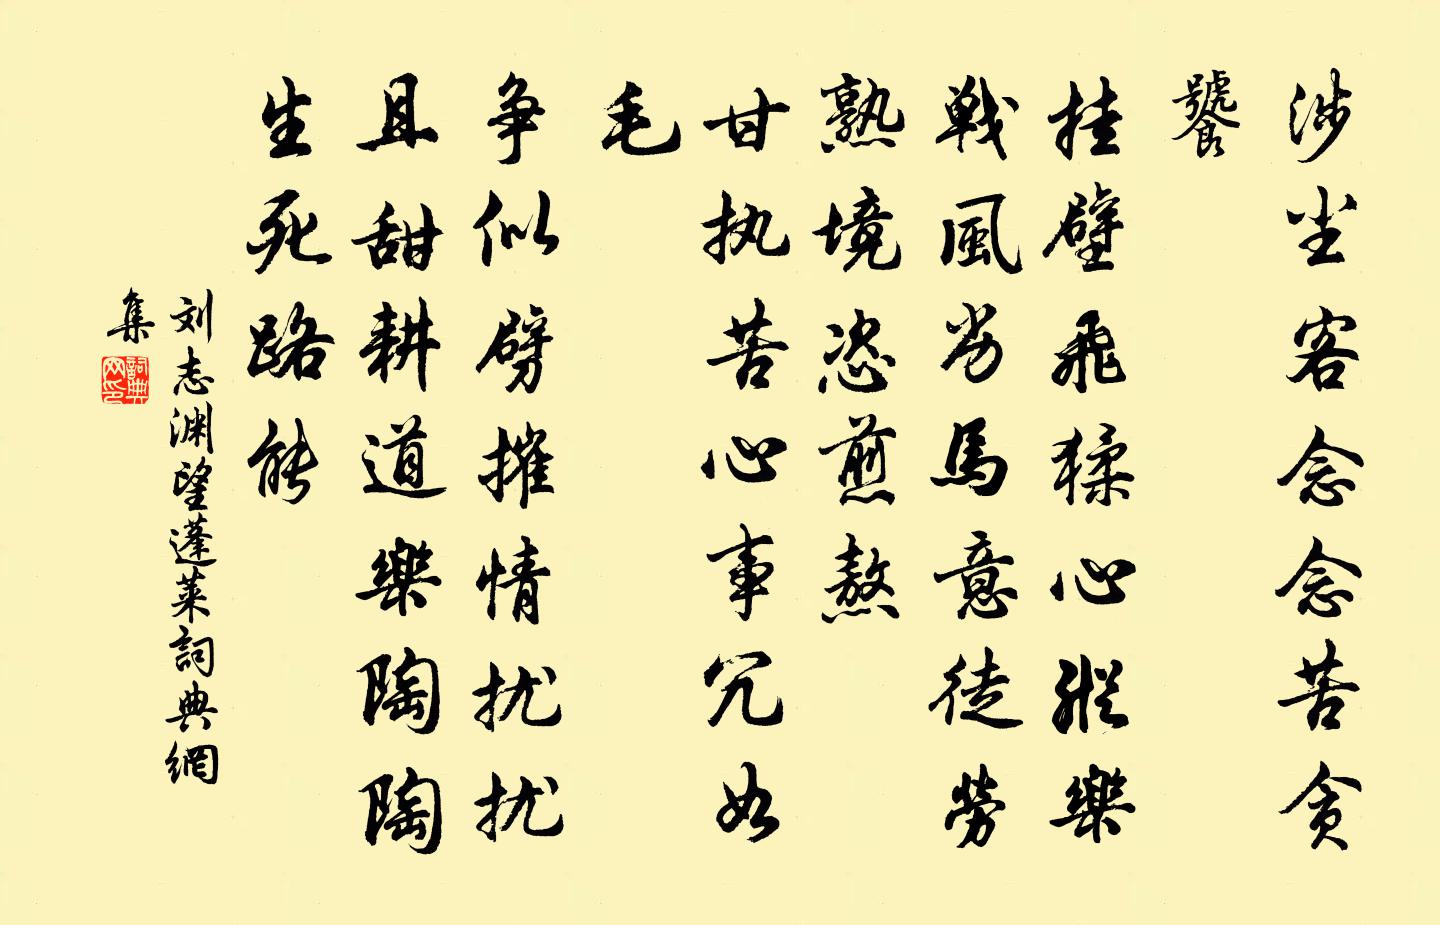 涉尘客念念苦贪
饕
挂壁飛猱心縱樂
戦風劣馬意徒勞
熟境恣煎熬
甘执苦心事冗如
毛
争似劈摧情扰扰
且甜耕道樂陶陶
生死路能
刘志渊望蓬莱詞典網
集
詞典网印